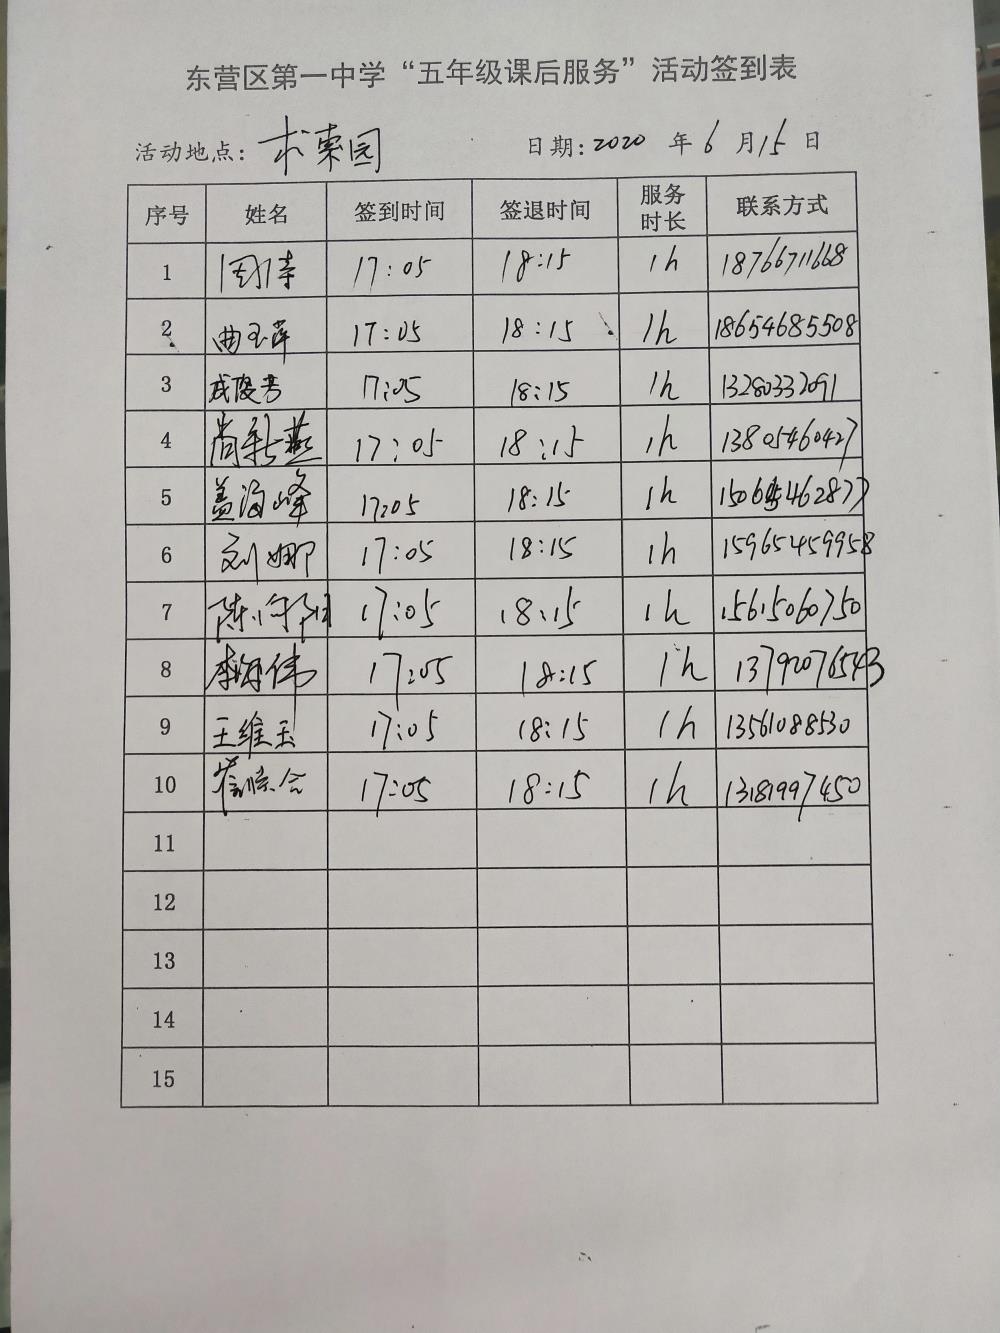 东营区第一中学“五年级课后服务”活动签到表
活动地点: 求索园 日期: 2020 年 6 月 15 日
序号 姓名 签到时间 签退时间 服务时长 联系方式
1 周倩 17:05 18:15 1h 18766711668
2 曲玉萍 17:05 18:15 1h 18654685508
3 成俊芳 17:05 18:15 1h 13280332091
4 尚新燕 17:05 18:15 1h 13805460427
5 盖海峰 17:05 18:15 1h
6 刘娜 17:05 18:15 1h 15965459958
7 17:05 18:15 1h 15615060750
8 李海伟 17:05 18:15 1h 13792076543
9 王维玉 17:05 18:15 1h 13561088530
10 17:05 18:15 1h 13181997450
11
12
13
14
15